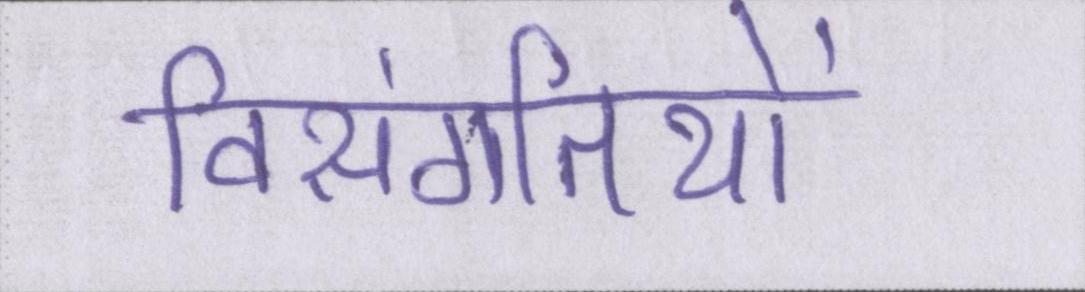 विसंगतियों